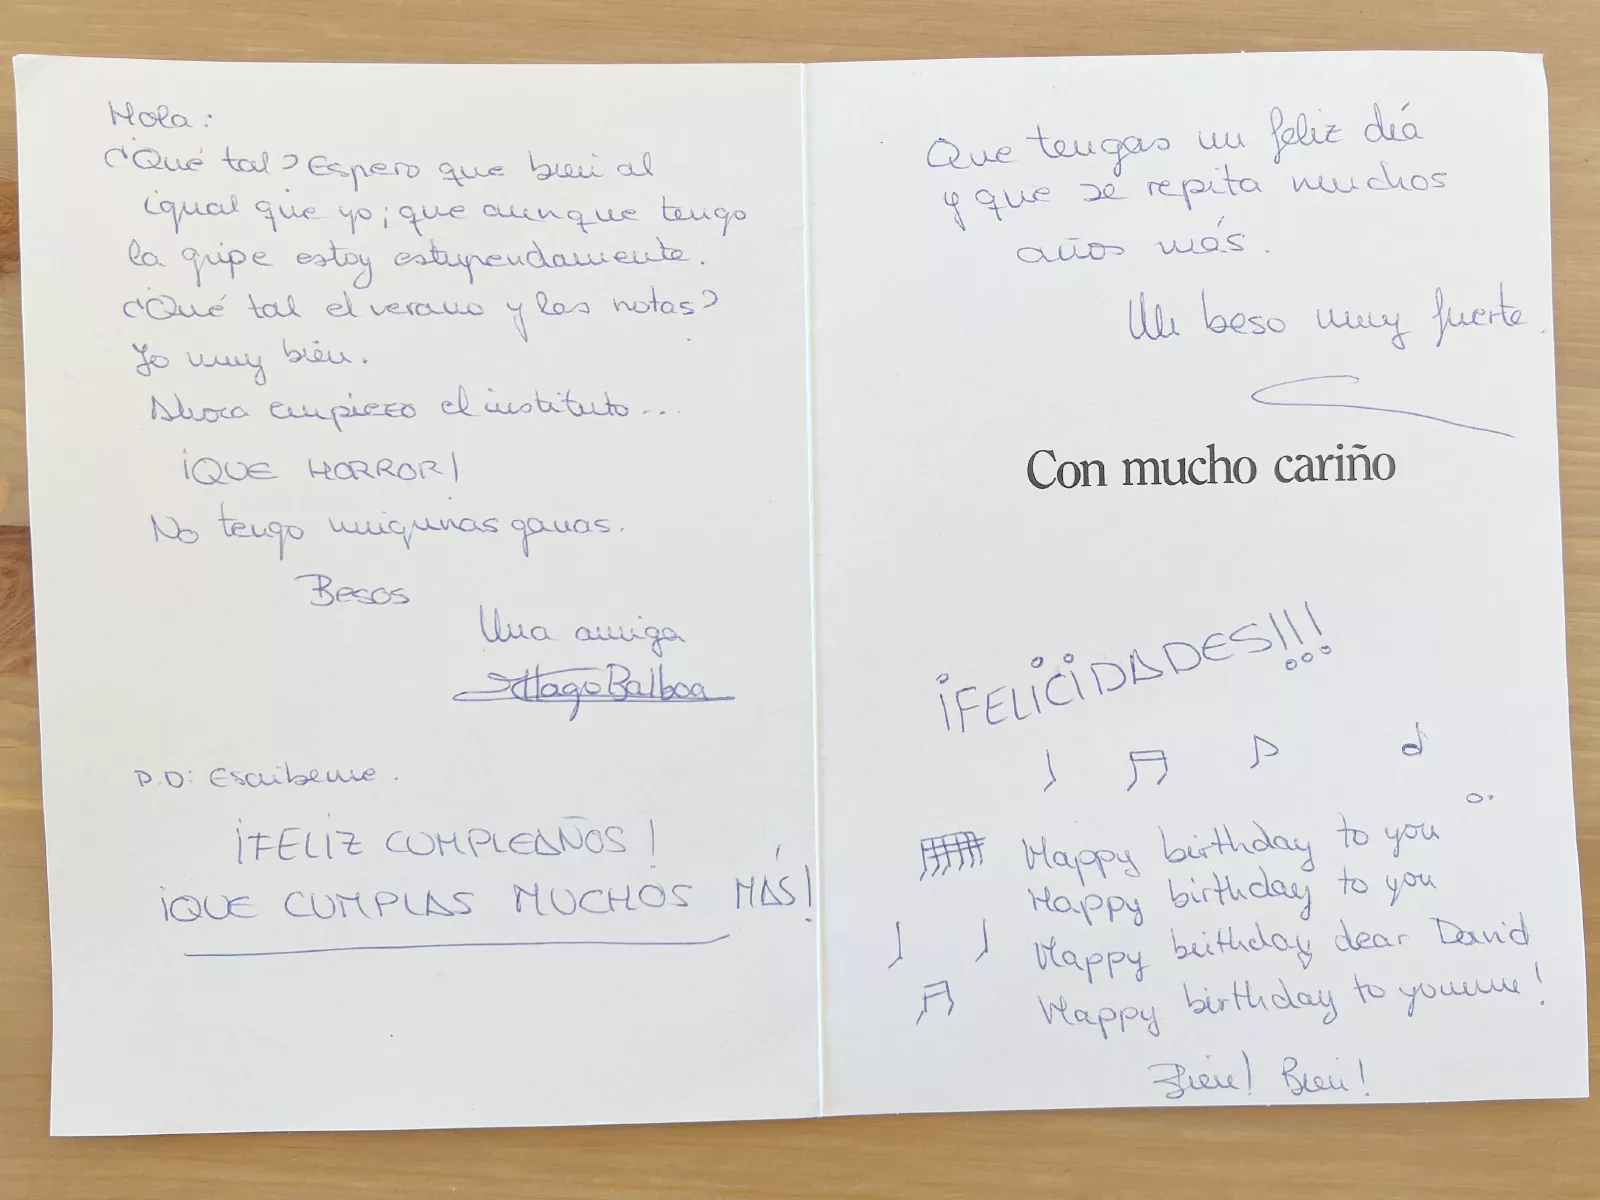 Hola:
¿Qué tal? Espero que bien al
igual que yo; que aunque tengo
la gripe estoy estupendamente.
¿Qué tal el verano y las notas?
Yo muy bien.
Ahora empiezo el instituto...
¡QUE HORROR!
No tengo ningunas ganas.
Besos
Una amiga
Balboa
P.D: Escribeme.
¡FELIZ CUMPLEAÑOS!
¡QUE CUMPLAS MUCHOS MÁS!
Que tengas un feliz día
y que se repita muchos
años más.
Un beso muy fuerte.
Con mucho cariño
¡FELICIDADES!!!
Happy birthday to you
Happy birthday to you
Happy birthday dear David
Happy birthday to youuuu!
Bien! Bien!